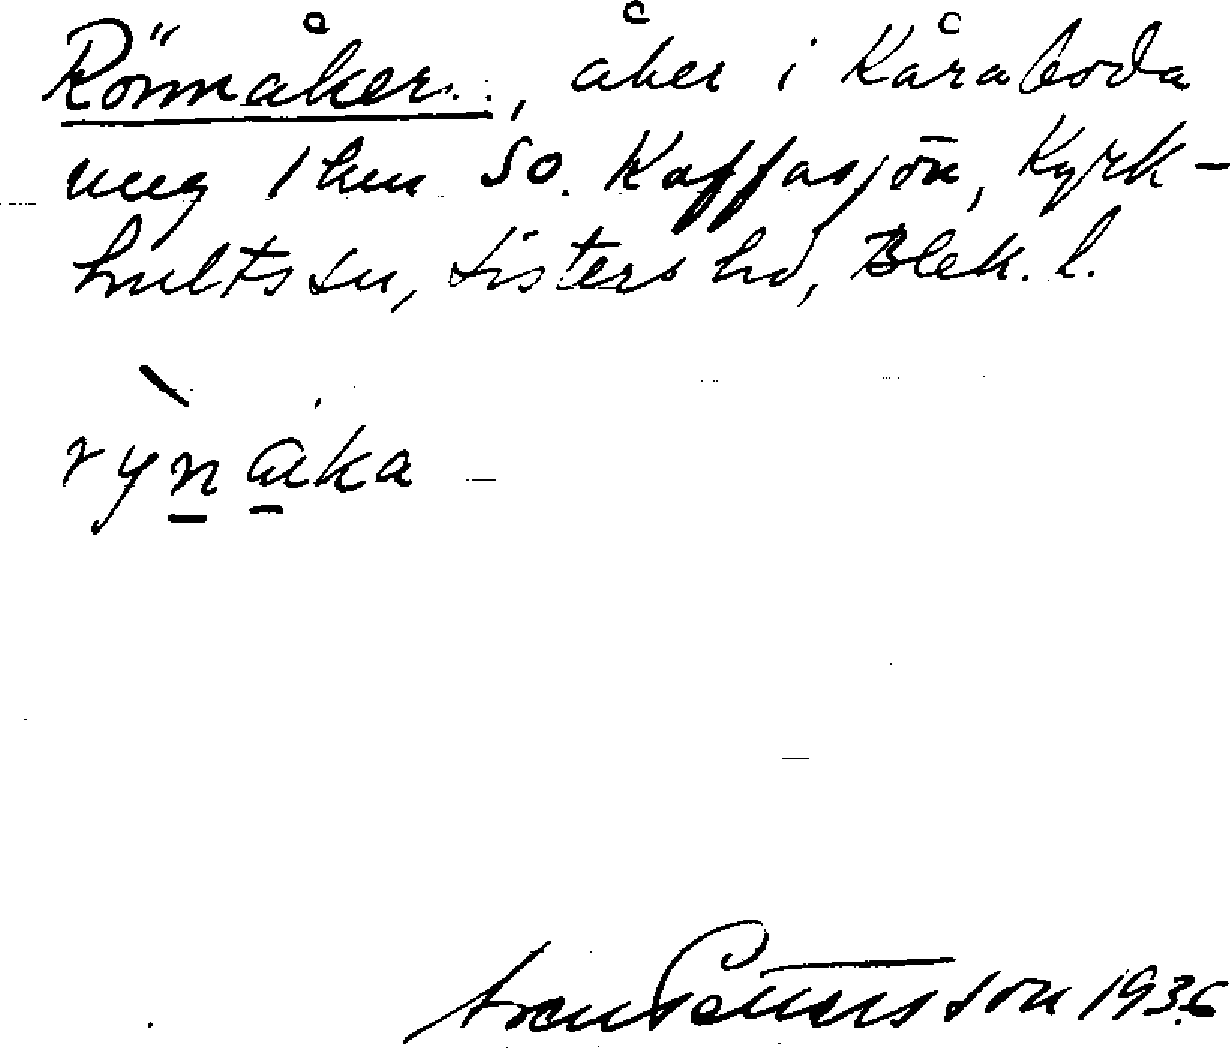 Rönnåker, åker i Kåraboda
ung 1 km SO. Kaffasjön, Kyrk-
hults sn, Listers hd, Blek. l.
rynåka
Sven Pettersson 1936